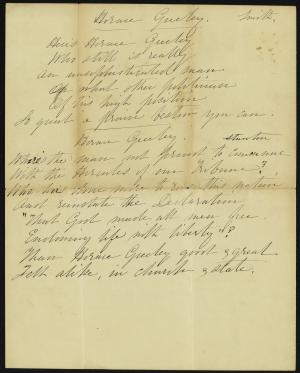 Horace Greeley. Smith.
Heres Horace Greeley
Who still is really
An unsophisticated man
Of what other politician
Of his high position
Is quoth a praise bestow you can.
Horace Greeley. Stanton
Where's the man not proud to
With the Hercules of our Tribune?
Who has done more to this nation
And reinstate the Declaration
"That God made all men free
Enclining life with liberty"?
Than Horace Greeley good & great
Felt alike, in church & state.